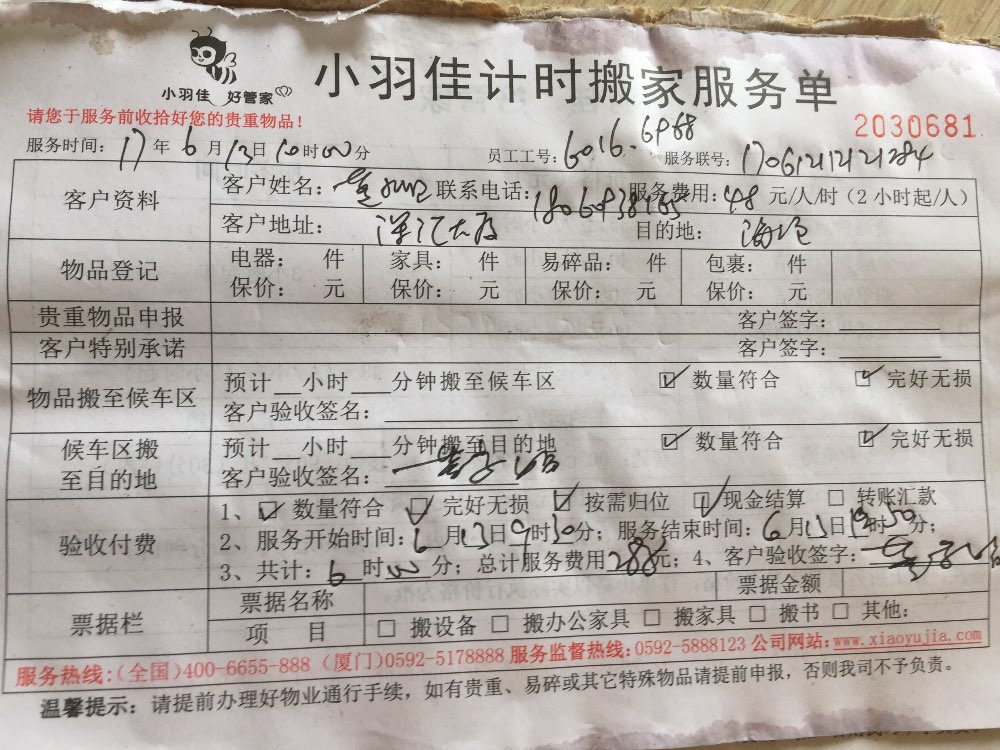 小羽佳 好管家
小羽佳计时搬家服务单
请您于服务前收拾好您的贵重物品！
2030681
服务时间：17年6月13日10时00分 员工工号：6016.6988 服务联号：1706121121284
客户资料 客户姓名： 联系电话： 服务费用：48元/人/时（2小时起/人）
客户地址：洋江大厦 目的地：海沧
物品登记 电器： 件 家具： 件 易碎品： 件 包裹： 件
保价： 元 保价： 元 保价： 元 保价： 元
贵重物品申报 客户签字：
客户特别承诺 客户签字：
物品搬至候车区 预计__小时__分钟搬至候车区 ☑数量符合 ☑完好无损
客户验收签名：
候车区搬至目的地 预计__小时__分钟搬至目的地 ☑数量符合 ☑完好无损
客户验收签名：
验收付费 1、☑数量符合 ☑完好无损 ☑按需归位 ☑现金结算 □转账汇款
2、服务开始时间：6月13日9时30分；服务结束时间：6月13日 时50分；
3、共计：6时00分；总计服务费用288元；4、客户验收签字：
票据栏 票据名称 票据金额
项 目 □搬设备 □搬办公家具 □搬家具 □搬书 □其他：
服务热线：（全国）400-6655-888（厦门）0592-5178888 服务监督热线：0592-5888123 公司网站：www.xiaoyujia.com
温馨提示：请提前办理好物业通行手续，如有贵重、易碎或其它特殊物品请提前申报，否则我司不予负责。